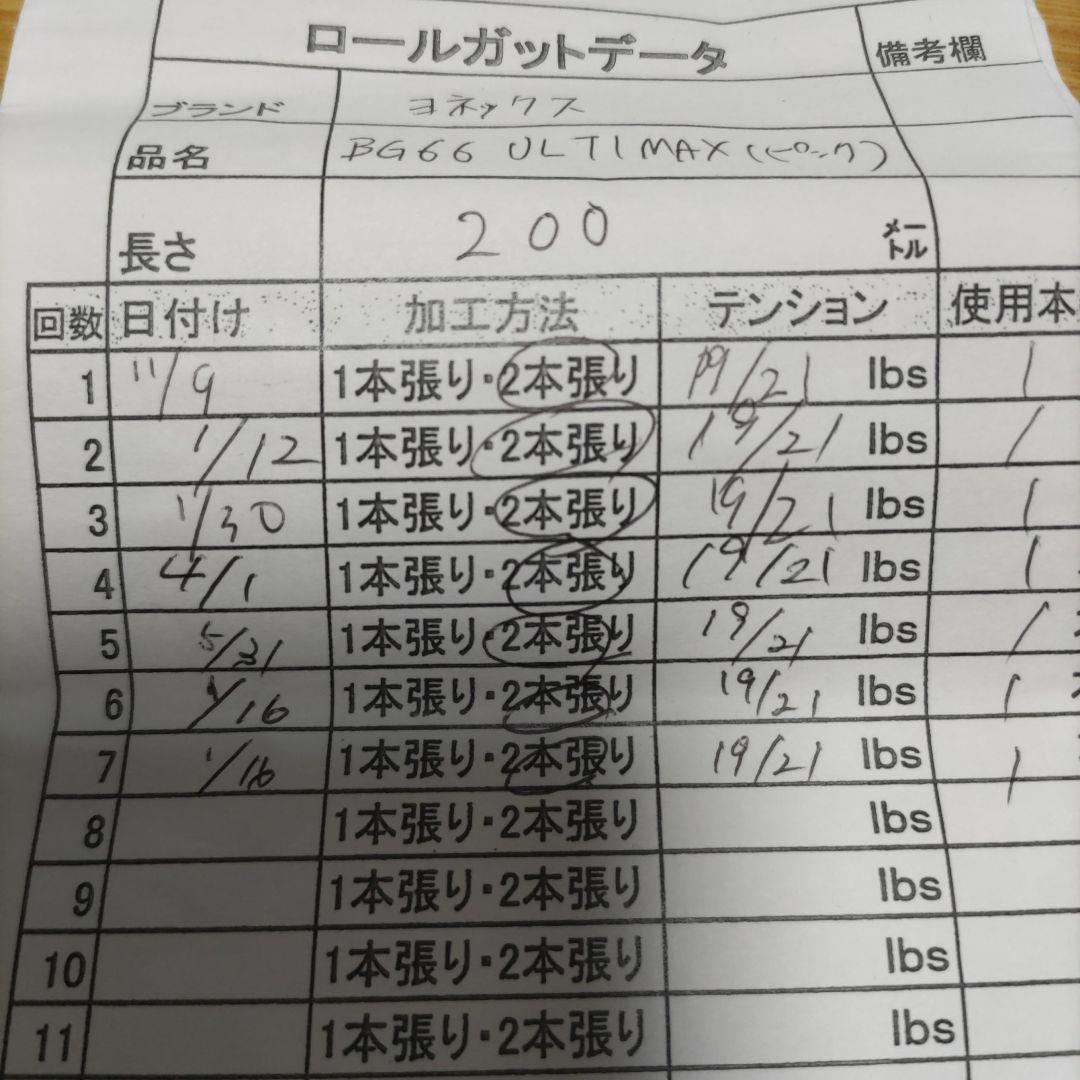 ロールガットデータ 備考欄
ブランド ヨネックス
品名 BG66 ULTIMAX (ピンク)
長さ 200 メートル
回数 日付け 加工方法 テンション 使用本
1 11/9 1本張り・2本張り 19/21 lbs 1
2 1/12 1本張り・2本張り 19/21 lbs 1
3 1/30 1本張り・2本張り 19/21 lbs 1
4 4/1 1本張り・2本張り 19/21 lbs 1
5 5/31 1本張り・2本張り 19/21 lbs 1
6 /16 1本張り・2本張り 19/21 lbs 1
7 1/16 1本張り・2本張り 19/21 lbs 1
8 1本張り・2本張り lbs
9 1本張り・2本張り lbs
10 1本張り・2本張り lbs
11 1本張り・2本張り lbs